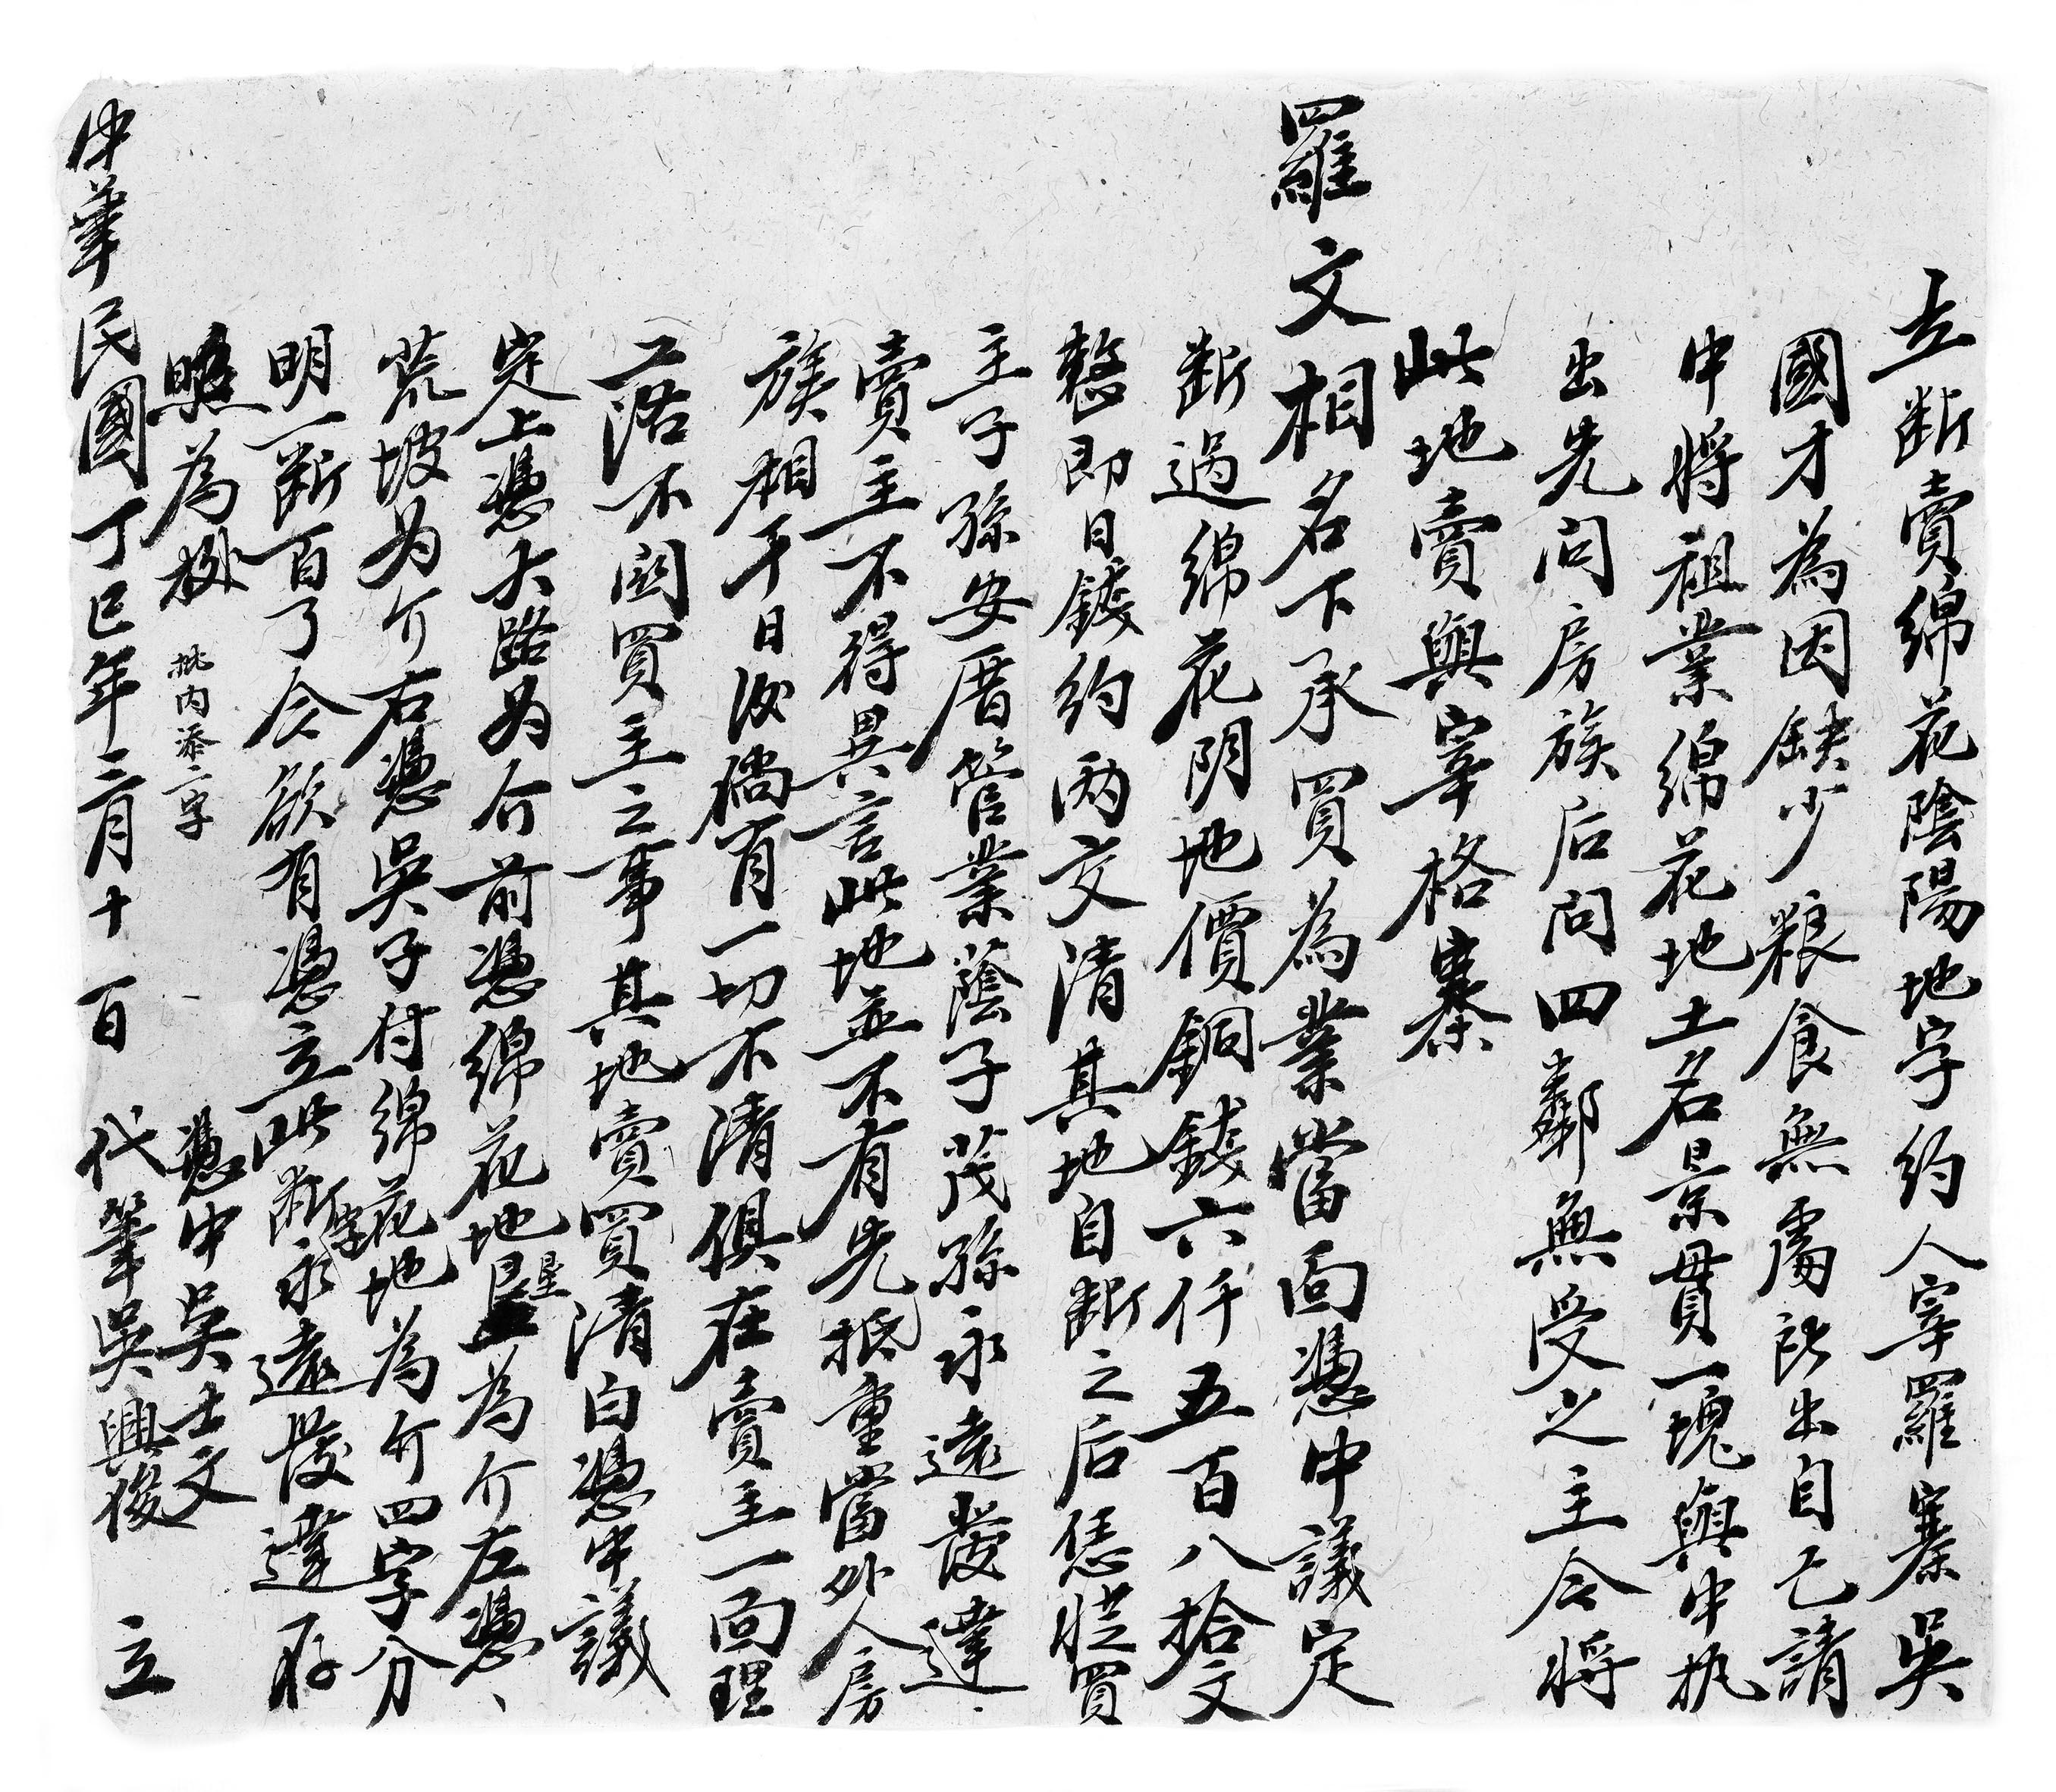 立断賣綿花陰陽地字約人宰羅寨吳
國才為因缺少粮食無處訟出自己請
中將祖業綿花地土名景貫一塊與中执
出先问房族后问四鄰無受之主今將
此地賣與宰格寨
羅文相名下承買為業當面憑中議定
断過綿花阴地價銅錢六仟五百八拾文
整即日錢约两交清其地自断之后恁従買
主子孫安厝管業蔭子茂孫永遠發達
賣主不得異言此地並不有先抵重當外人房
族相干日後倘有一切不清俱在賣主一面理
落不関買主之事其地賣買清白憑中議
定上憑大路为介前憑綿花地屋為介左憑
荒坡为介右憑吳子付綿花地為介四字分
明一断百了今欲有憑立此断字永遠發達存
照為㨿
批内添二字
憑中吳士文
代筆吳興後
中華民國丁巳年三月十百 立